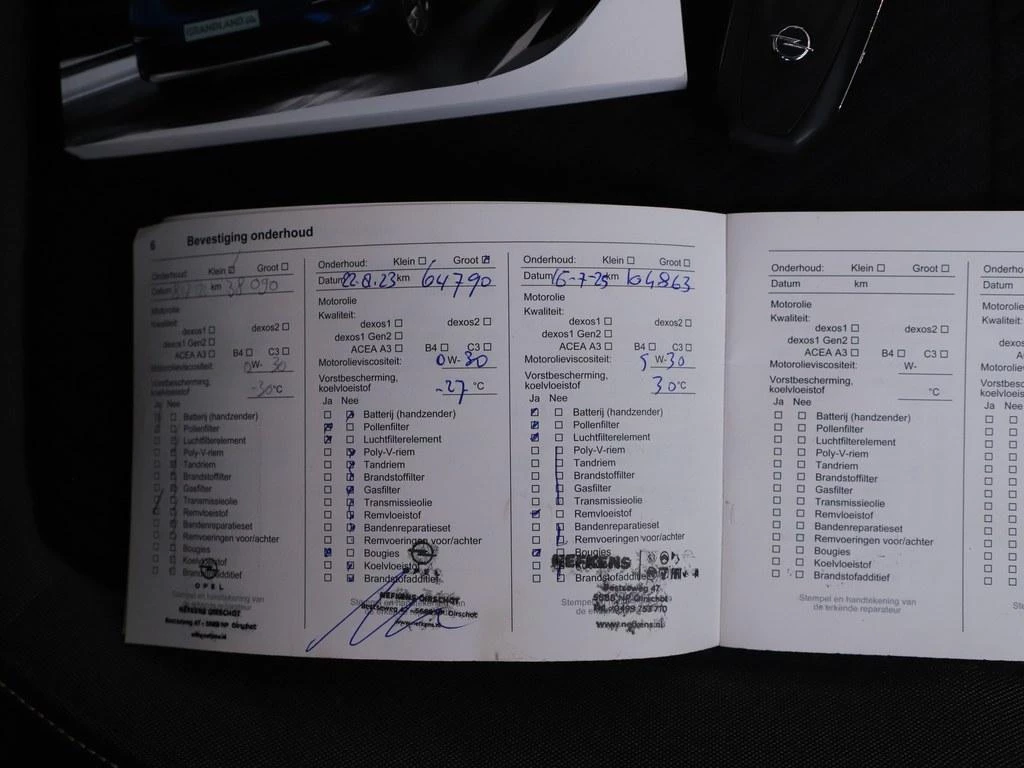 GRANDLAND
6 Bevestiging onderhoud
Onderhoud: Klein Groot
Datum km 38090
Motorolie
Kwaliteit:
dexos1 dexos2
dexos1 Gen2
ACEA A3 B4 C3
Motorolieviscositeit: 0W-30
Vorstbescherming,
koelvloeistof -30°C
Ja Nee
Batterij (handzender)
Pollenfilter
Luchtfilterelement
Poly-V-riem
Tandriem
Brandstoffilter
Gasfilter
Transmissieolie
Remvloeistof
Bandenreparatieset
Remvoeringen voor/achter
Bougies
Koelvloeistof
Brandstofadditief
OPEL
Stempel en handtekening van
de erkende reparateur
NEFKENS OIRSCHOT
Bestseweg 47 • 5688 NP Oirschot
www.nefkens.nl
Onderhoud: Klein Groot
Datum 22.8.23 km 64790
Motorolie
Kwaliteit:
dexos1 dexos2
dexos1 Gen2
ACEA A3 B4 C3
Motorolieviscositeit: 0W-30
Vorstbescherming,
koelvloeistof -27 °C
Ja Nee
Batterij (handzender)
Pollenfilter
Luchtfilterelement
Poly-V-riem
Tandriem
Brandstoffilter
Gasfilter
Transmissieolie
Remvloeistof
Bandenreparatieset
Remvoeringen voor/achter
Bougies
Koelvloeistof
Brandstofadditief
NEFKENS OIRSCHOT
Bestseweg 47 • 5688 NP Oirschot
www.nefkens.nl
Onderhoud: Klein Groot
Datum km 64863
Motorolie
Kwaliteit:
dexos1 dexos2
dexos1 Gen2
ACEA A3 B4 C3
Motorolieviscositeit: 5W-30
Vorstbescherming,
koelvloeistof 30°C
Ja Nee
Batterij (handzender)
Pollenfilter
Luchtfilterelement
Poly-V-riem
Tandriem
Brandstoffilter
Gasfilter
Transmissieolie
Remvloeistof
Bandenreparatieset
Remvoeringen voor/achter
Bougies
NEFKENS
Brandstofadditief
Bestseweg 47
5688 NP Oirschot
Tel.: 0499 253 710
www.nefkens.nl
Onderhoud: Klein Groot
Datum km
Motorolie
Kwaliteit:
dexos1 dexos2
dexos1 Gen2
ACEA A3 B4 C3
Motorolieviscositeit: W-
Vorstbescherming,
koelvloeistof °C
Ja Nee
Batterij (handzender)
Pollenfilter
Luchtfilterelement
Poly-V-riem
Tandriem
Brandstoffilter
Gasfilter
Transmissieolie
Remvloeistof
Bandenreparatieset
Remvoeringen voor/achter
Bougies
Koelvloeistof
Brandstofadditief
Stempel en handtekening van
de erkende reparateur
Datum
Ja Nee